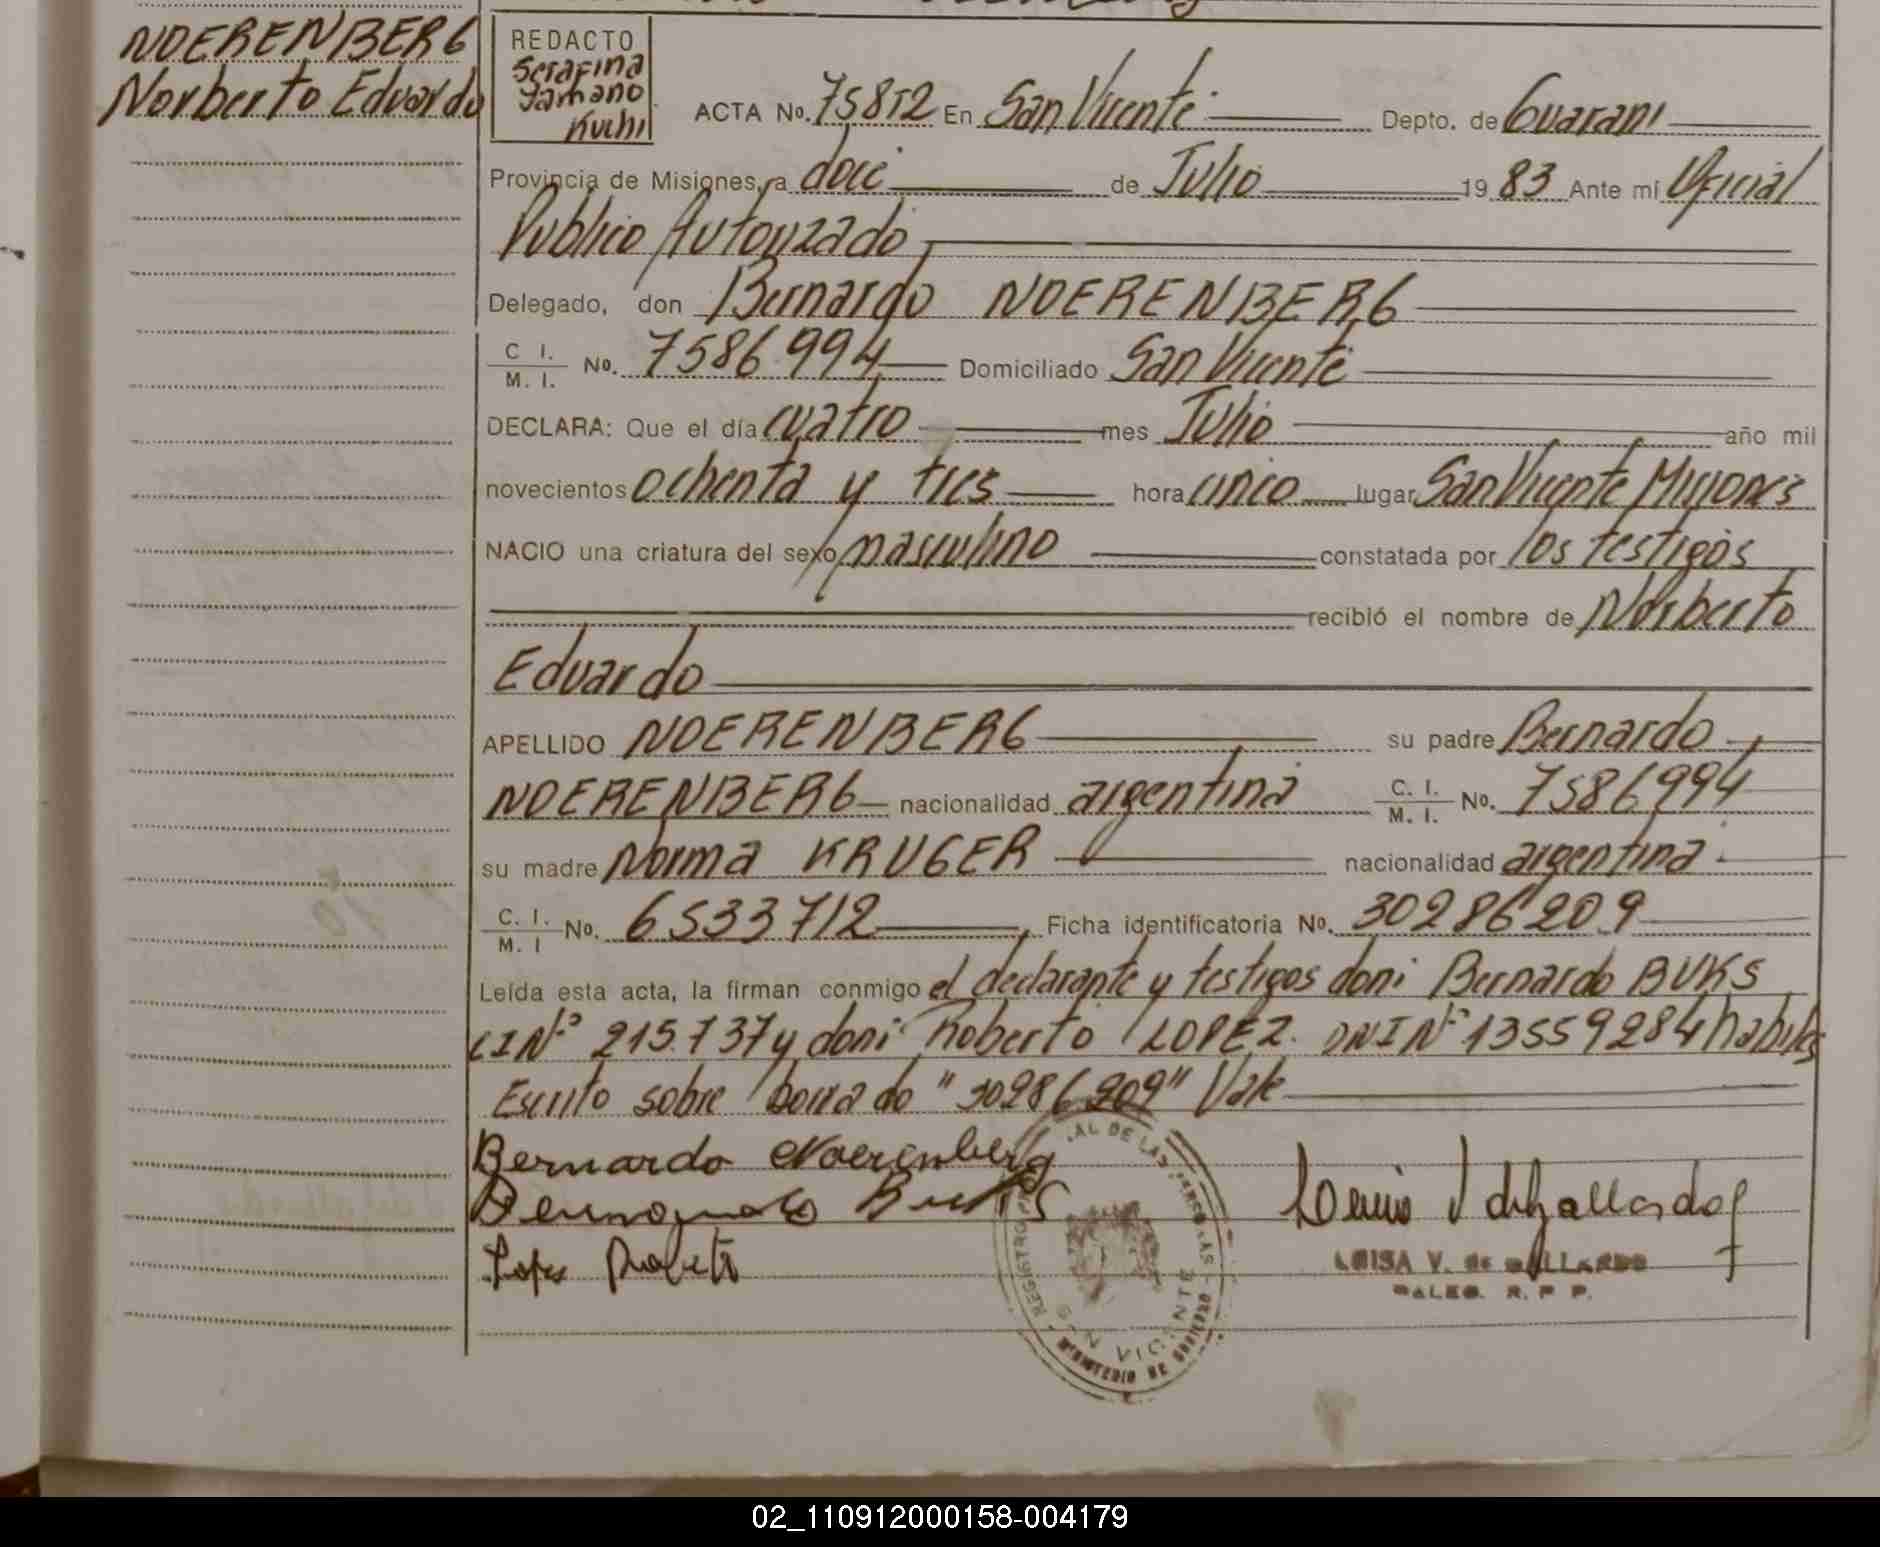 NOERENBERG
Norberto Eduardo
REDACTO
Serafina
Yamano
Kuchi
ACTA No. 75812 En San Vicente Depto. de Guarani
Provincia de Misiones, a doce de Julio 19 83 Ante mí Oficial
Publico Autorizado
Delegado, don Bernardo NOERENBERG
C I. M. I. No. 7586994 Domiciliado San Vicente
DECLARA: Que el día cuatro mes Julio año mil
novecientos ochenta y tres hora cinco lugar San Vicente Misiones
NACIO una criatura del sexo masculino constatada por los testigos
recibió el nombre de Norberto
Eduardo
APELLIDO NOERENBERG su padre Bernardo
NOERENBERG nacionalidad argentina C. I. M. I. No. 7586994
su madre Norma KRUGER nacionalidad argentina
C. I. M. I No. 6533712 Ficha identificatoria No. 30286209
Leída esta acta, la firman conmigo el declarante y testigos don: Bernardo BUKS
CI Nº 215.737 y don: Roberto LOPEZ. DNI Nº 13559284 habiles
Escrito sobre borrado "30286209" Vale
Bernardo Noerenberg
Buks
Lopes Roberto
LUISA V. DE GALLARDO
R. P. P.
REGISTRO
AL DE LAS
SAN VICENTE
MINISTERIO DE GOBIERNO
02_110912000158-004179